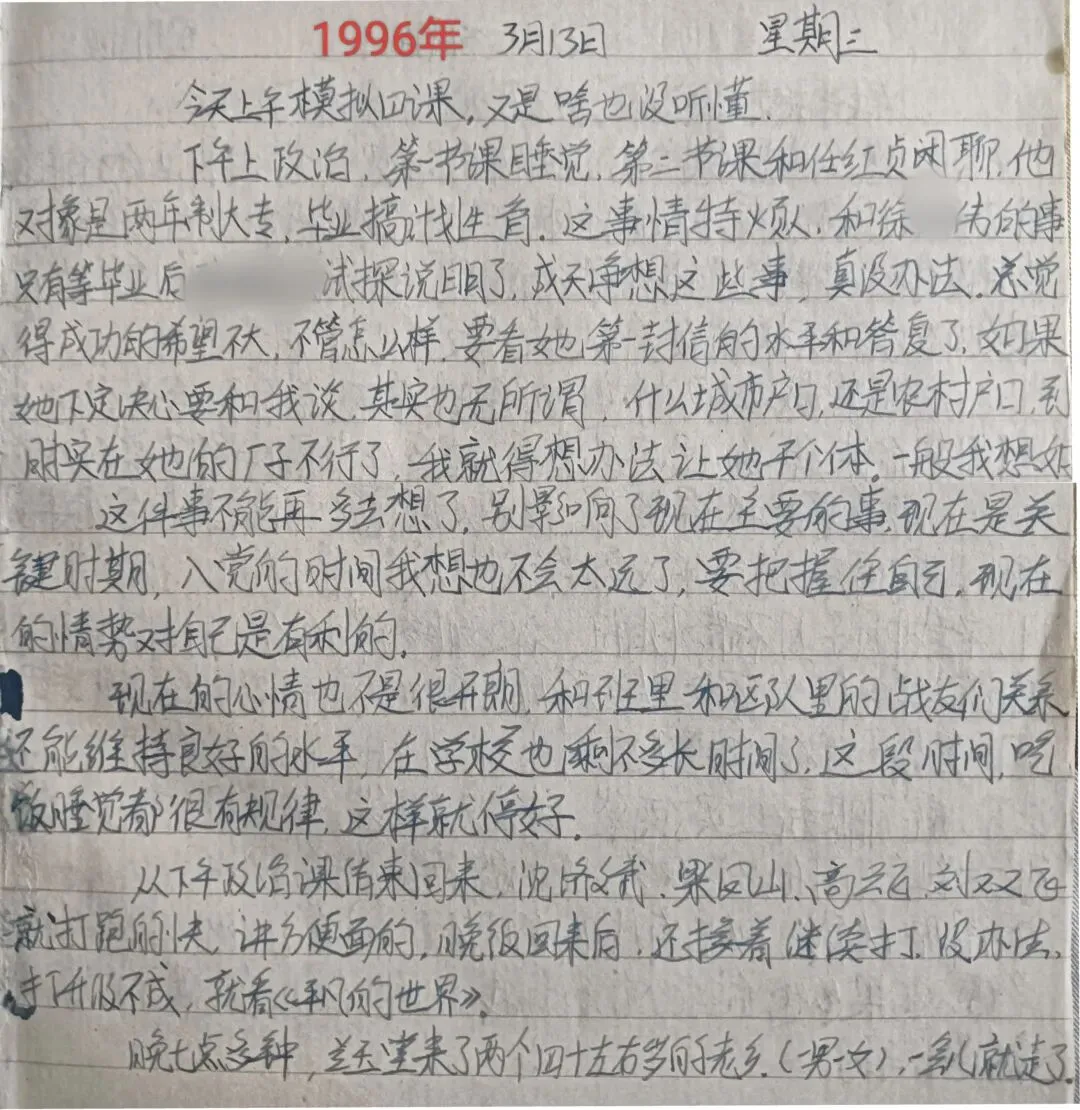 1996年 3月13日 星期三
今天上午模拟四课,又是啥也没听懂.
下午上政治,第一节课睡觉,第二节课和任红贞闲聊,他
对象是两年制大专,毕业搞计划生育.这事情特烦人,和徐 伟的事
只有等毕业后 试探说明了,成天净想这些事,真没办法.总觉
得成功的希望不大,不管怎么样,要看她第一封信的水平和答复了,如果
她下定决心要和我谈,其实也无所谓,什么城市户口,还是农村户口,到
时实在她的厂子不行了,我就得想办法让她干个体。一般我想如
这件事不能再多去想了,别影响了现在主要的事,现在是关
键时期,入党的时间我想也不会太远了,要把握住自己,现在
的情势对自己是有利的.
现在的心情也不是很开朗,和班里和区队里的战友们关系
还能维持良好的水平,在学校也剩不多长时间了,这段时间,吃
饭睡觉都很有规律,这样就停好.
从下午政治课结束回来,沈济武、梁凤山、高云飞、刘双飞
就打跑的快,讲方便面的,晚饭回来后,还接着继续打.没办法,
打升级不成,就看《平凡的世界》.
晚七点多钟,兰玉堂来了两个四十左右岁的老乡.(一男一女),一会儿就走了.